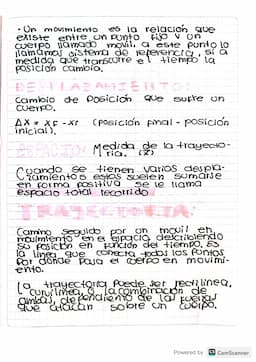 - Un movimiento es la relación que
existe entre un punto fijo y un
cuerpo llamado movil, a este punto lo
llamamos sistema de referencia, si a
medida que transcurre el tiempo la
posición cambia.
DESPLAZAMIENTO:
Cambio de posición que sufre un
cuerpo.
ΔX = XF - XI (posición final - posición
inicial).
ESPACIO: Medida de la trayecto-
ria.
Cuando se tienen varios despla-
zamientos estos suelen sumarse
en forma positiva se le llama
espacio total recorrido
TRAYECTORIA:
Camino seguido por un movil en
movimiento en el espacio describiendo
su posición en función del tiempo. Es
la linea que conecta todos los puntos
por donde pasa el cuerpo en movimi-
ento.
La trayectoria puede ser rectilinea,
curvilinea o la combinación de
ambas, dependiendo de las fuerzas
que actuan sobre un cuerpo.
Powered by CS CamScanner